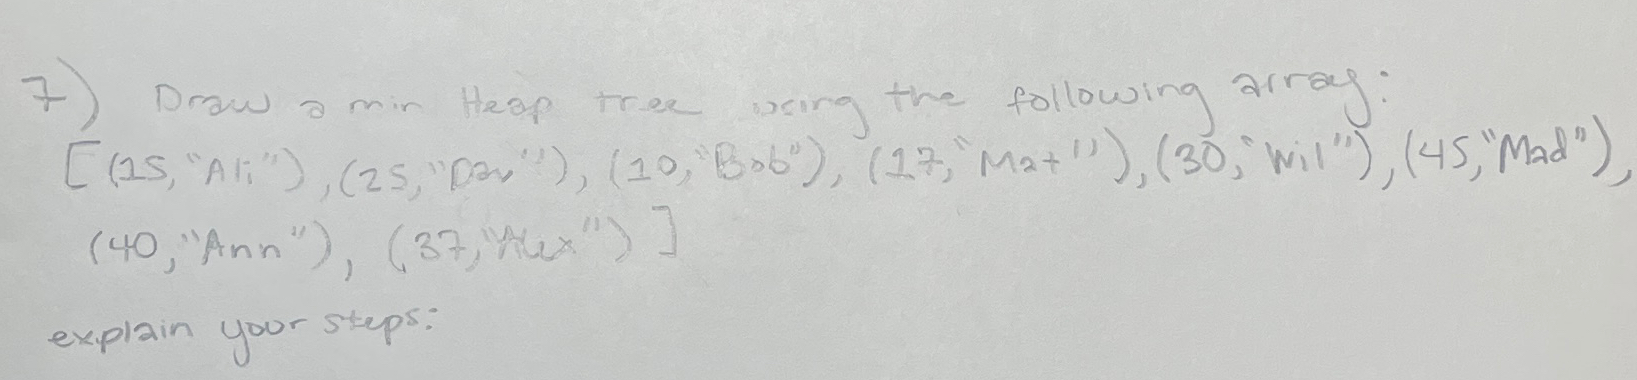 7) Draw a min Heap tree using the following array:
[(15,"Ali"),(25,"Dav"), (10,"Bob"), (17,"Mat"),(30,"Wil"),(45,"Mad"),
(40,"Ann"), (37,"Alex")]
explain your steps: